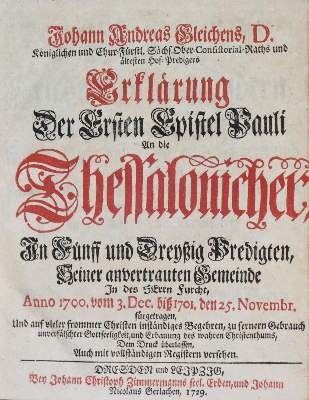 Johann Andreas Gleichens, D.
Königlichen und Chur-Fürstl. Sächs. Ober-Consistorial-Raths und
ältesten Hof-Predigers
Erklärung
Der Ersten Epistel Pauli
An die
Thessalonicher,
In Fünff und Dreyßig Predigten,
Seiner anvertrauten Gemeinde
In des HErrn Furcht,
Anno 1700. vom 3. Dec. biß 1701. den 25. Novembr.
fürgetragen,
Und auf vieler frommer Christen inständiges Begehren, zu fernern Gebrauch
unverfälschter Gottseeligkeit, und Erbauung des wahren Christenthums,
Dem Druck überlassen,
Auch mit vollständigen Registern versehen.
DRESDEN und LEIPZIG,
Bey Johann Christoph Zimmermanns seel. Erben, und Johann
Nicolaus Gerlachen, 1729.